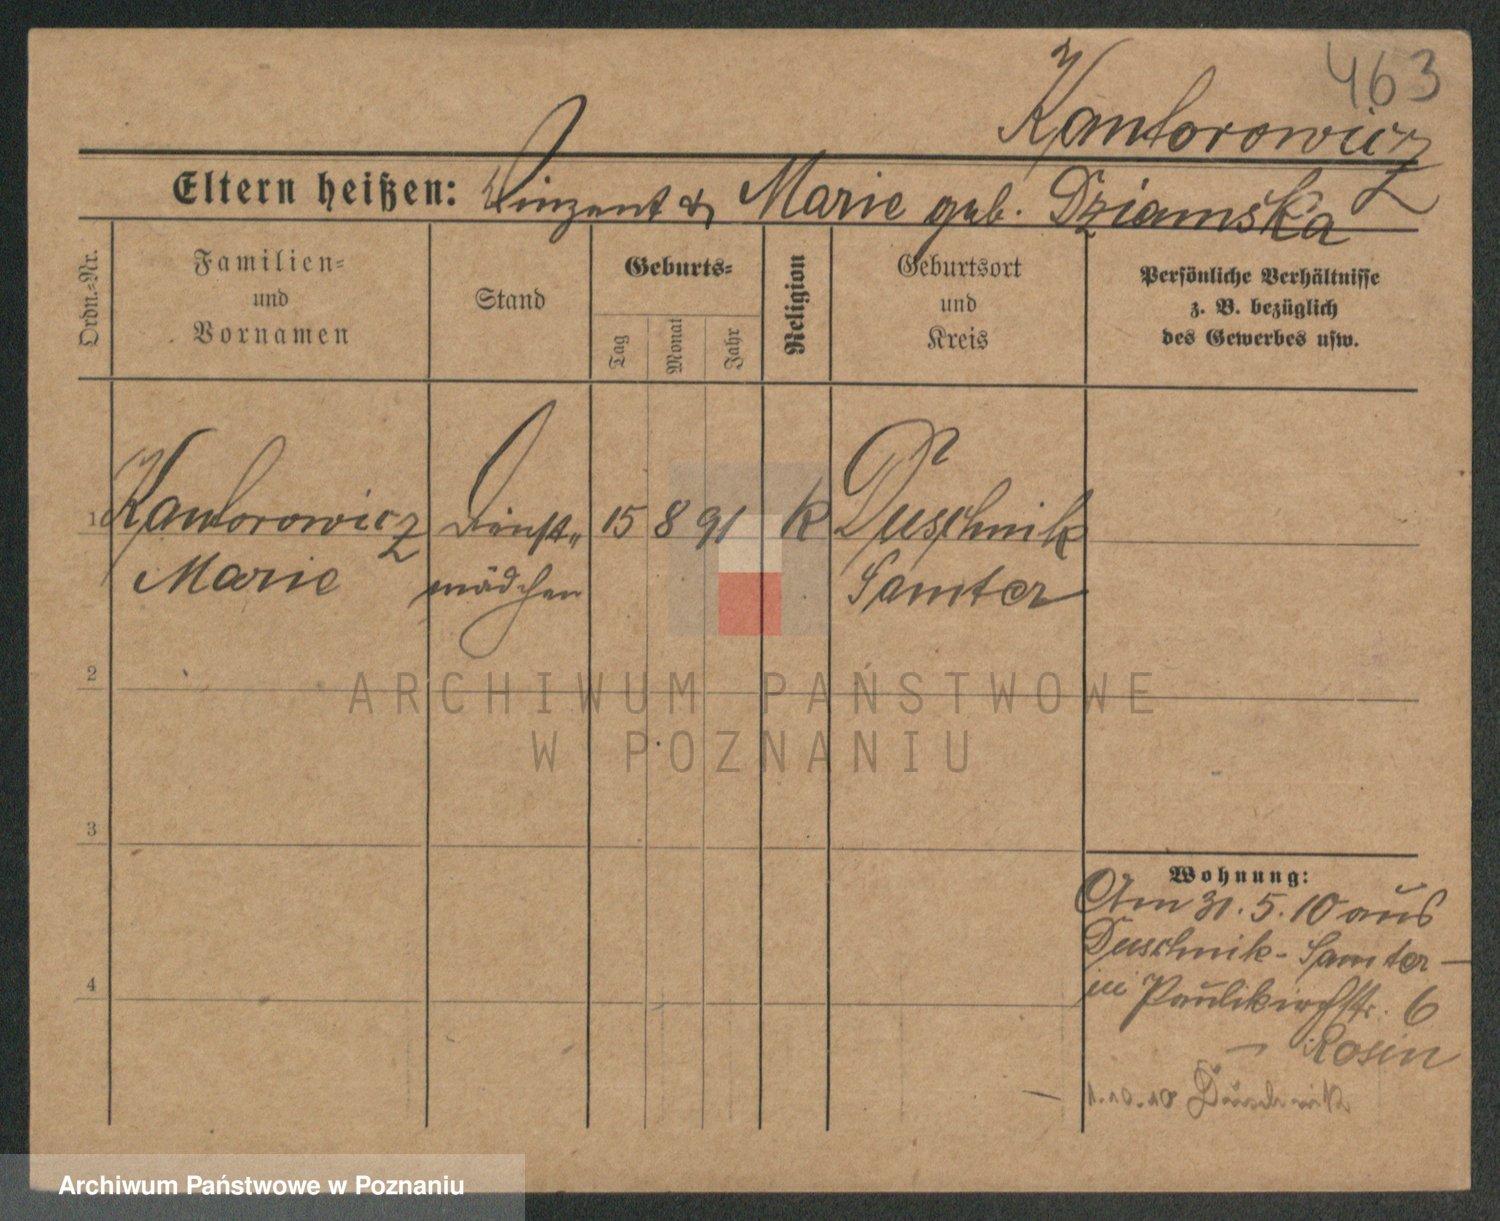 463
Kantorowicz
Eltern heißen: Vinzent & Marie geb. Dziamska
Ordn.-Nr.
Familien-
und
Vornamen
Stand
Geburts-
Tag
Monat
Jahr
Religion
Geburtsort
und
Kreis
Persönliche Verhältnisse
z. B. bezüglich
des Gewerbes usw.
1 Kantorowicz Dienst- 15 8 91 k Duschnik
Marie mädchen Samter
2
ARCHIWUM PAŃSTWOWE
W POZNANIU
3
Wohnung:
Am 31.5.10 aus
Duschnik-Samter-
in Paulikirchstr. 6
Rosin
4
1.10.10 Duschnik
Archiwum Państwowe w Poznaniu